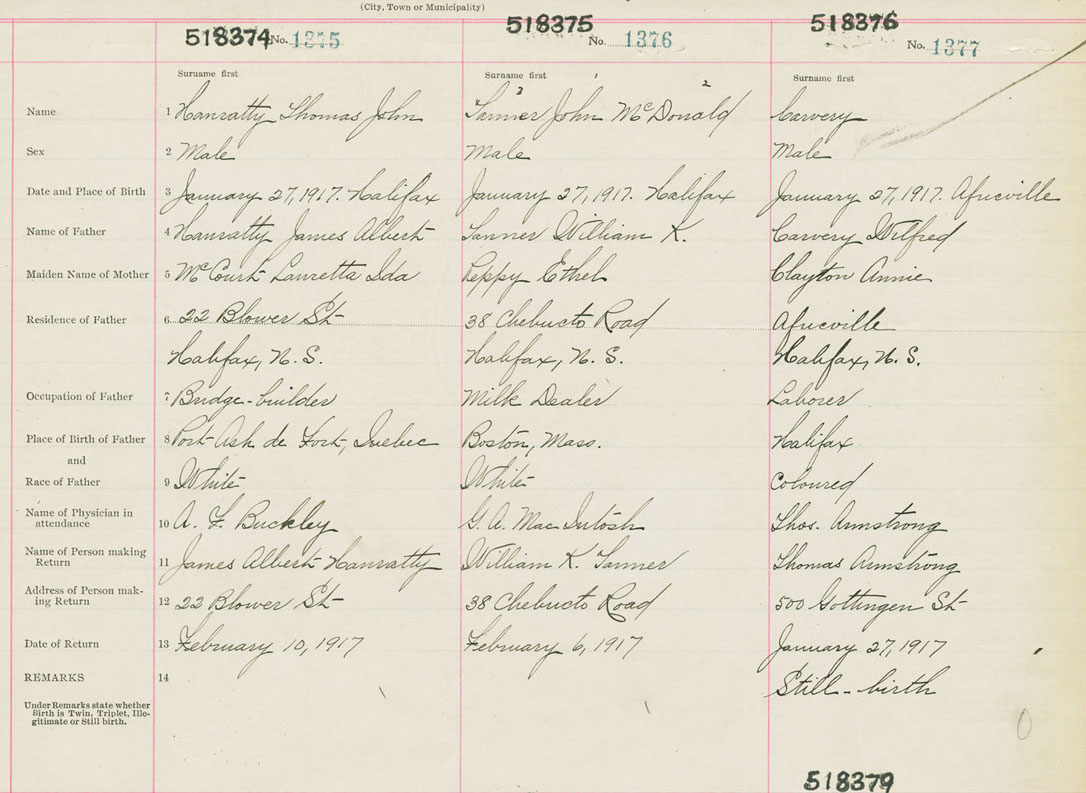 (City, Town or Municipality)
518374 No. 1375 518375 No. 1376 518376 No. 1377
Surname first Surname first Surname first
3 1 2
Name 1 Hanratty Thomas John Tanner John McDonald Carvery
Sex 2 Male Male Male
Date and Place of Birth 3 January 27, 1917. Halifax January 27, 1917. Halifax January 27, 1917. Africville
Name of Father 4 Hanratty James Albert Tanner William K. Carvery Wilfred
Maiden Name of Mother 5 McCourt Lauretta Ida Peppy Ethel Clayton Annie
Residence of Father 6 22 Blower St 38 Chebucto Road Africville
Halifax, N.S. Halifax, N.S. Halifax, N.S.
Occupation of Father 7 Bridge-builder Milk Dealer Laborer
Place of Birth of Father 8 Port de Fort, Quebec Boston, Mass. Halifax
and
Race of Father 9 White White Coloured
Name of Physician in
attendance 10 A. F. Buckley G. A. MacIntosh Thos. Armstrong
Name of Person making
Return 11 James Albert Hanratty William K. Tanner Thomas Armstrong
Address of Person mak-
ing Return 12 22 Blower St 38 Chebucto Road 500 Gottingen St
Date of Return 13 February 10, 1917 February 6, 1917 January 27, 1917
REMARKS 14 Still-birth
Under Remarks state whether
Birth is Twin, Triplet, Ille-
gitimate or Still birth.
518379